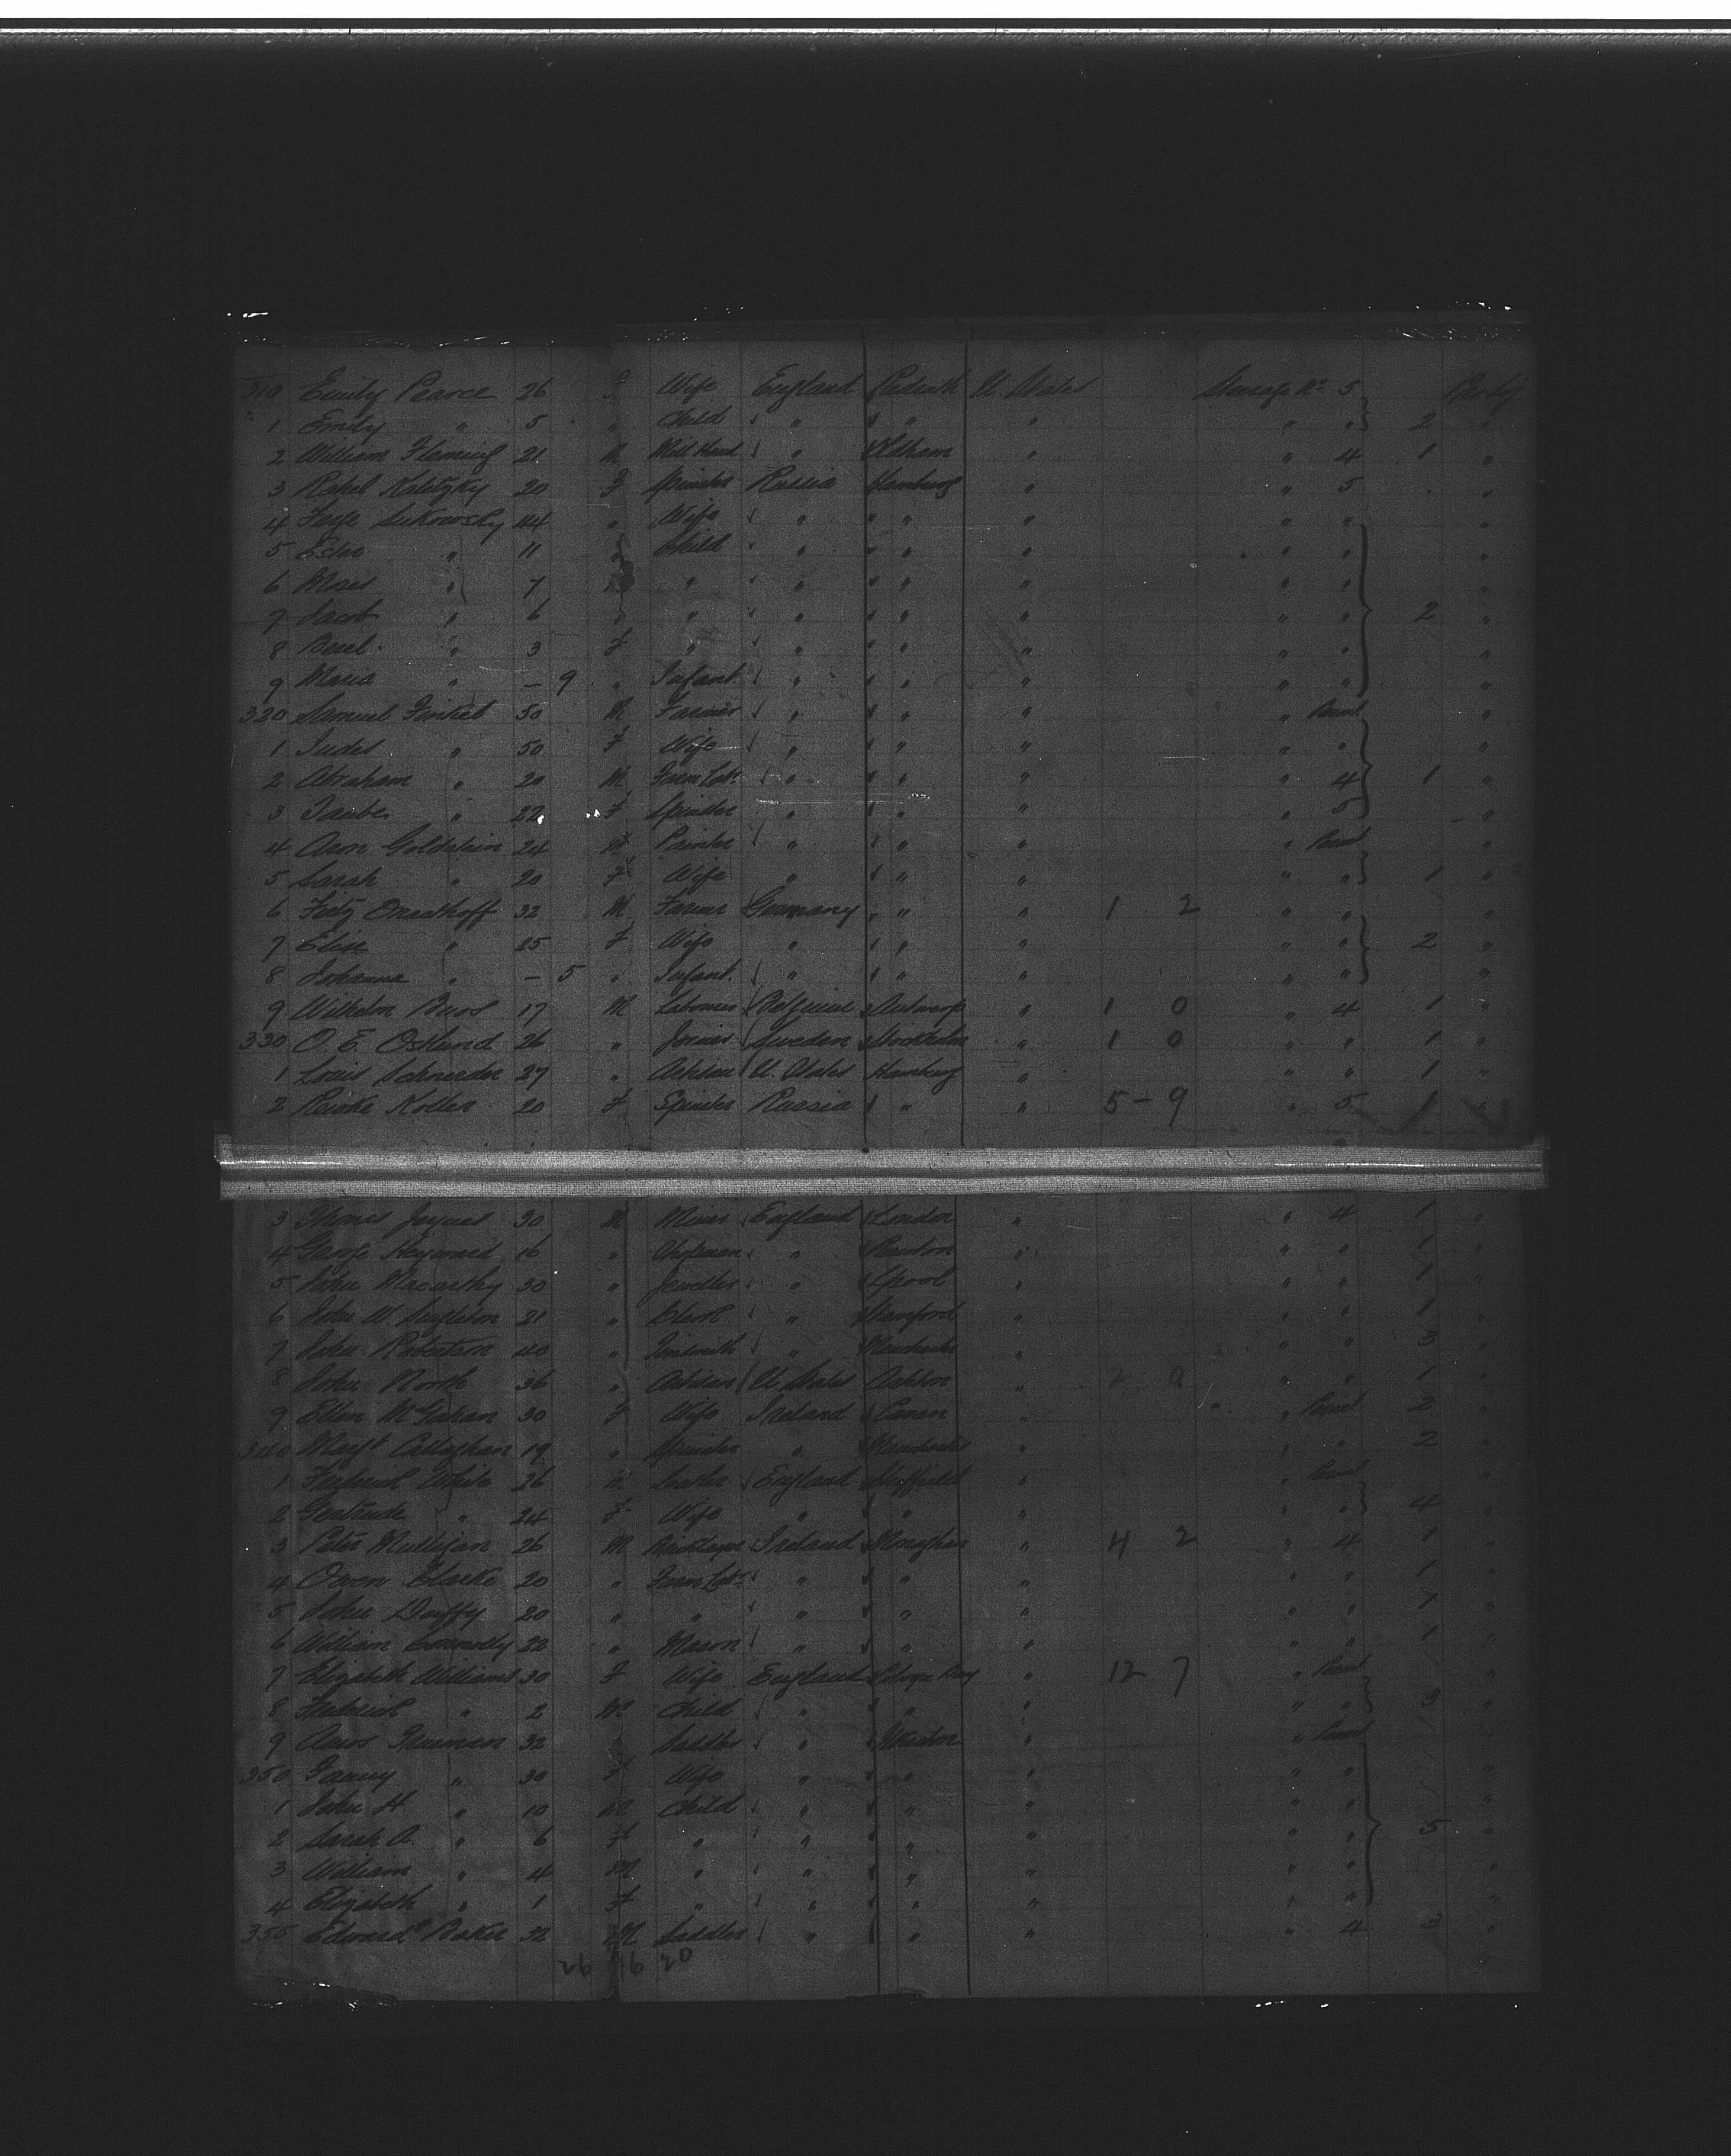 310 Emily Pearce 26 F Wife England Redruth U. States Steerage No. 5
1 Emily " 5 " Child " " " " " 2 "
2 William Fleming 21 M Mill Hand " Oldham " " 4 1 "
3 Rahel 20 F Spinster Russia Hamburg " " 5 "
4 44 " Wife " " " " " "
5 Ester " 11 " Child " " " " " "
6 Moses " 7 " " " " " " "
7 Jacob " 6 " " " " " " " 2 "
8 " 3 F " " " " " " "
9 Maria " – 9 " Infant " " " " " "
320 Samuel Finkel 50 M Farmer " " " " "
1 Judes " 50 F Wife " " " " " "
2 Abraham " 20 M Farm Labr " " " " 4 1 "
3 Taube " 22 F Spinster " " " " 5 "
4 Aron Goldstein 24 M Painter " " " " "
5 Sarah " 20 F Wife " " " " " 1 "
6 Fritz 32 M Farmer Germany " " 1 2 " " "
7 Elise " 25 F Wife " " " " " 2 "
8 Johanna " – 5 " Infant " " " " " "
9 Wilhelm 17 M Labourer Belgium Antwerp " 1 0 " 4 1 "
330 O. E. Ostlund 26 " Joiner Sweden Stockholm " 1 0 " " 1 "
1 Louis Schneider 27 " Artisan U. States Hamburg " " " 1 "
2 Koller 20 F Spinster Russia " " 5 – 9 " 5 1 "
3 Thomas Jaques 30 M Miner England London " " 4 1 "
4 George Heyward 16 " " " " " 1 "
5 John Macarthy 30 " Jeweller " Lpool " " " 1 "
6 John W Singleton 21 " Clerk " Stamford " " " 1 "
7 John Robertson 40 " Tinsmith " Manchester " " " 3 "
8 John North 36 " Artisan U. States Ashton " 2 0 " " 1 "
9 Ellen McGahan 30 F Wife Ireland Cavan " " 2 "
340 Magt Callaghan 19 " Spinster " Manchester " " " 2 "
1 Frederick White 26 M England Sheffield " " "
2 Gertrude " 24 F Wife " " " " " 4 "
3 Peter Mulligan 26 M Bricklayer Ireland Monaghan " 4 2 " 4 1 "
4 Owen Clarke 20 " Farm Labr " " " " " 1 "
5 John Duffy 20 " " " " " " " 1 "
6 William Connolly 22 " Mason " " " " " 1 "
7 Elizabeth Williams 30 F Wife England " 12 7 "
8 Frederick " 2 M Child " " " " " 3 "
9 Amos Freeman 32 Saddler " " "
350 Fanny " 30 F Wife " " " " " "
1 John H. " 10 M Child " " " " " "
2 Sarah A. " 6 F " " " " " " 5 "
3 William " 4 M " " " " " " "
4 Elizabeth " 1 F " " " " " " "
355 Edward Baker 32 M Saddler " " " " 4 3 "
26 16 20